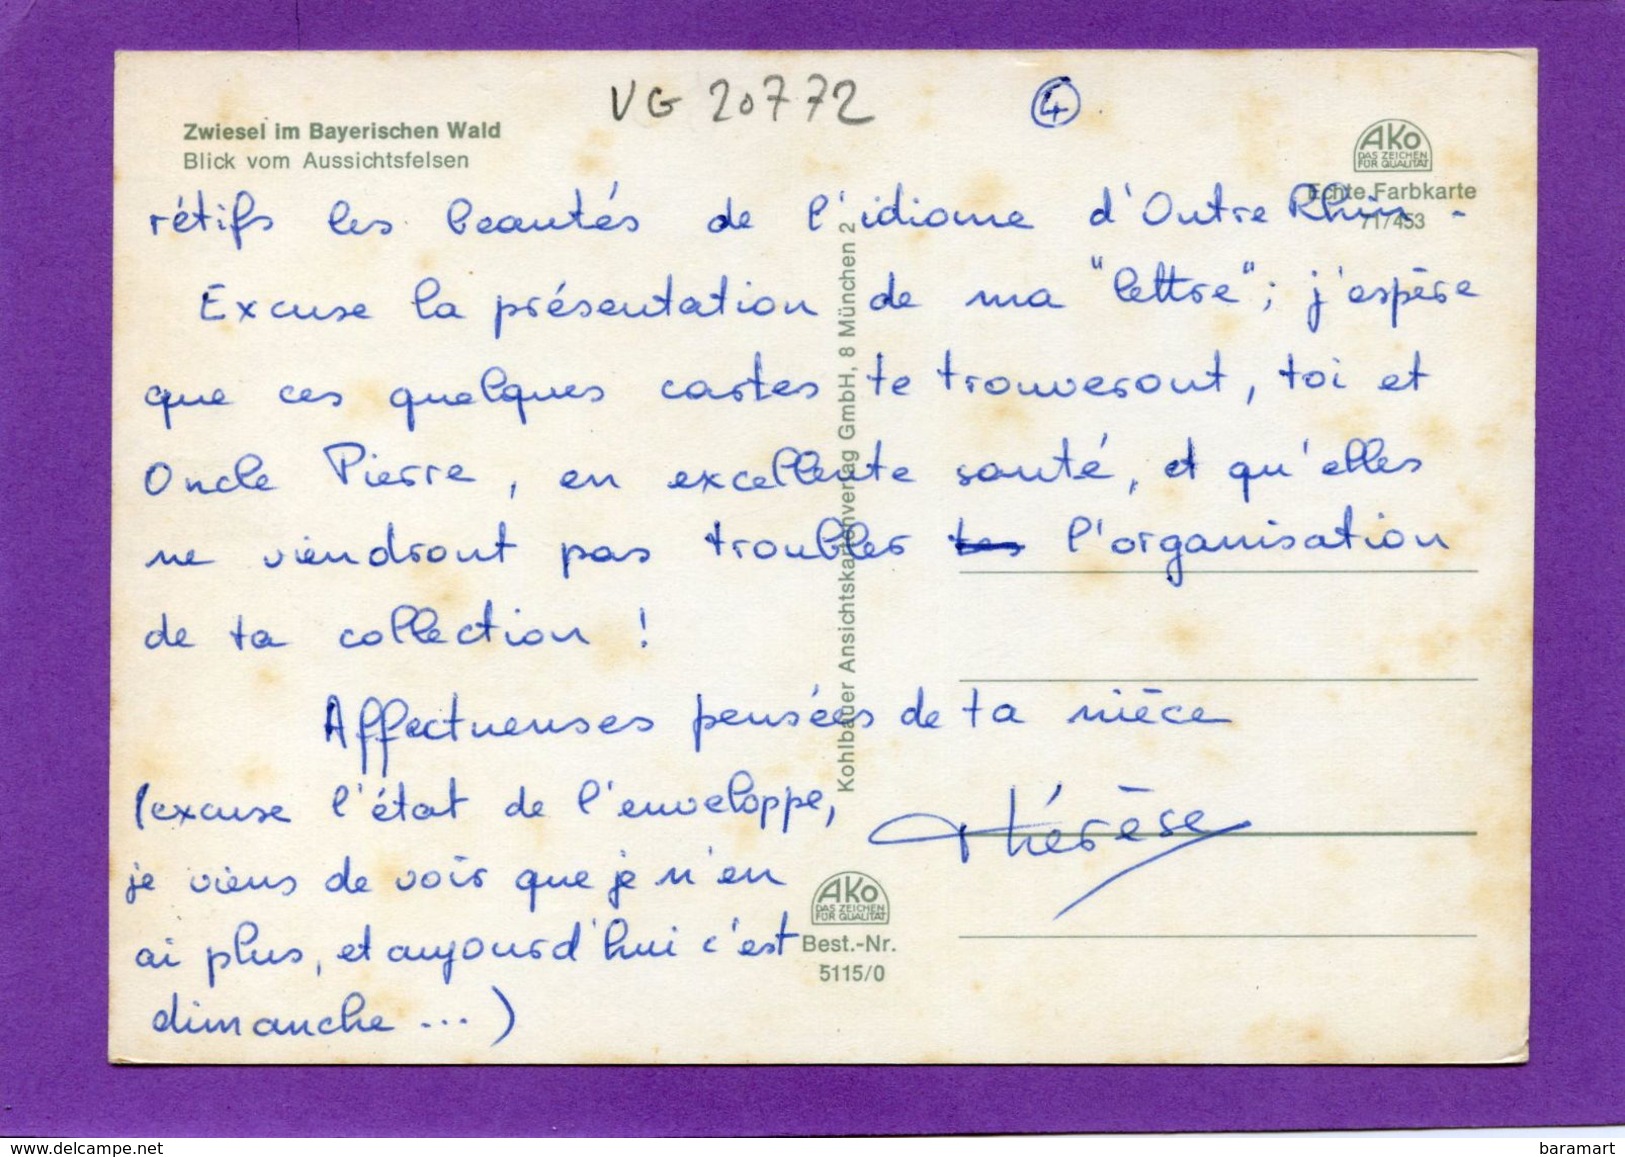 VG 20772
4
Zwiesel im Bayerischen Wald
Blick vom Aussichtsfelsen
AKO
DAS ZEICHEN
FÜR QUALITÄT
Echte Farbkarte
71/453
rétifs les beautés de l'idiome d'Outre Rhin.
Excuse la présentation de ma "lettre"; j'espère
que ces quelques cartes te trouveront, toi et
Oncle Pierre, en excellente santé, et qu'elles
ne viendront pas troubler l'organisation
de ta collection !
Affectueuses pensées de ta nièce
Thérèse
(excuse l'état de l'enveloppe,
je viens de voir que je n'en
ai plus, et aujourd'hui c'est
dimanche ...)
Kohlbauer Ansichtskartenverlag GmbH, 8 München 2
AKO
DAS ZEICHEN
FÜR QUALITÄT
Best.-Nr.
5115/0
www.delcampe.net
baramart